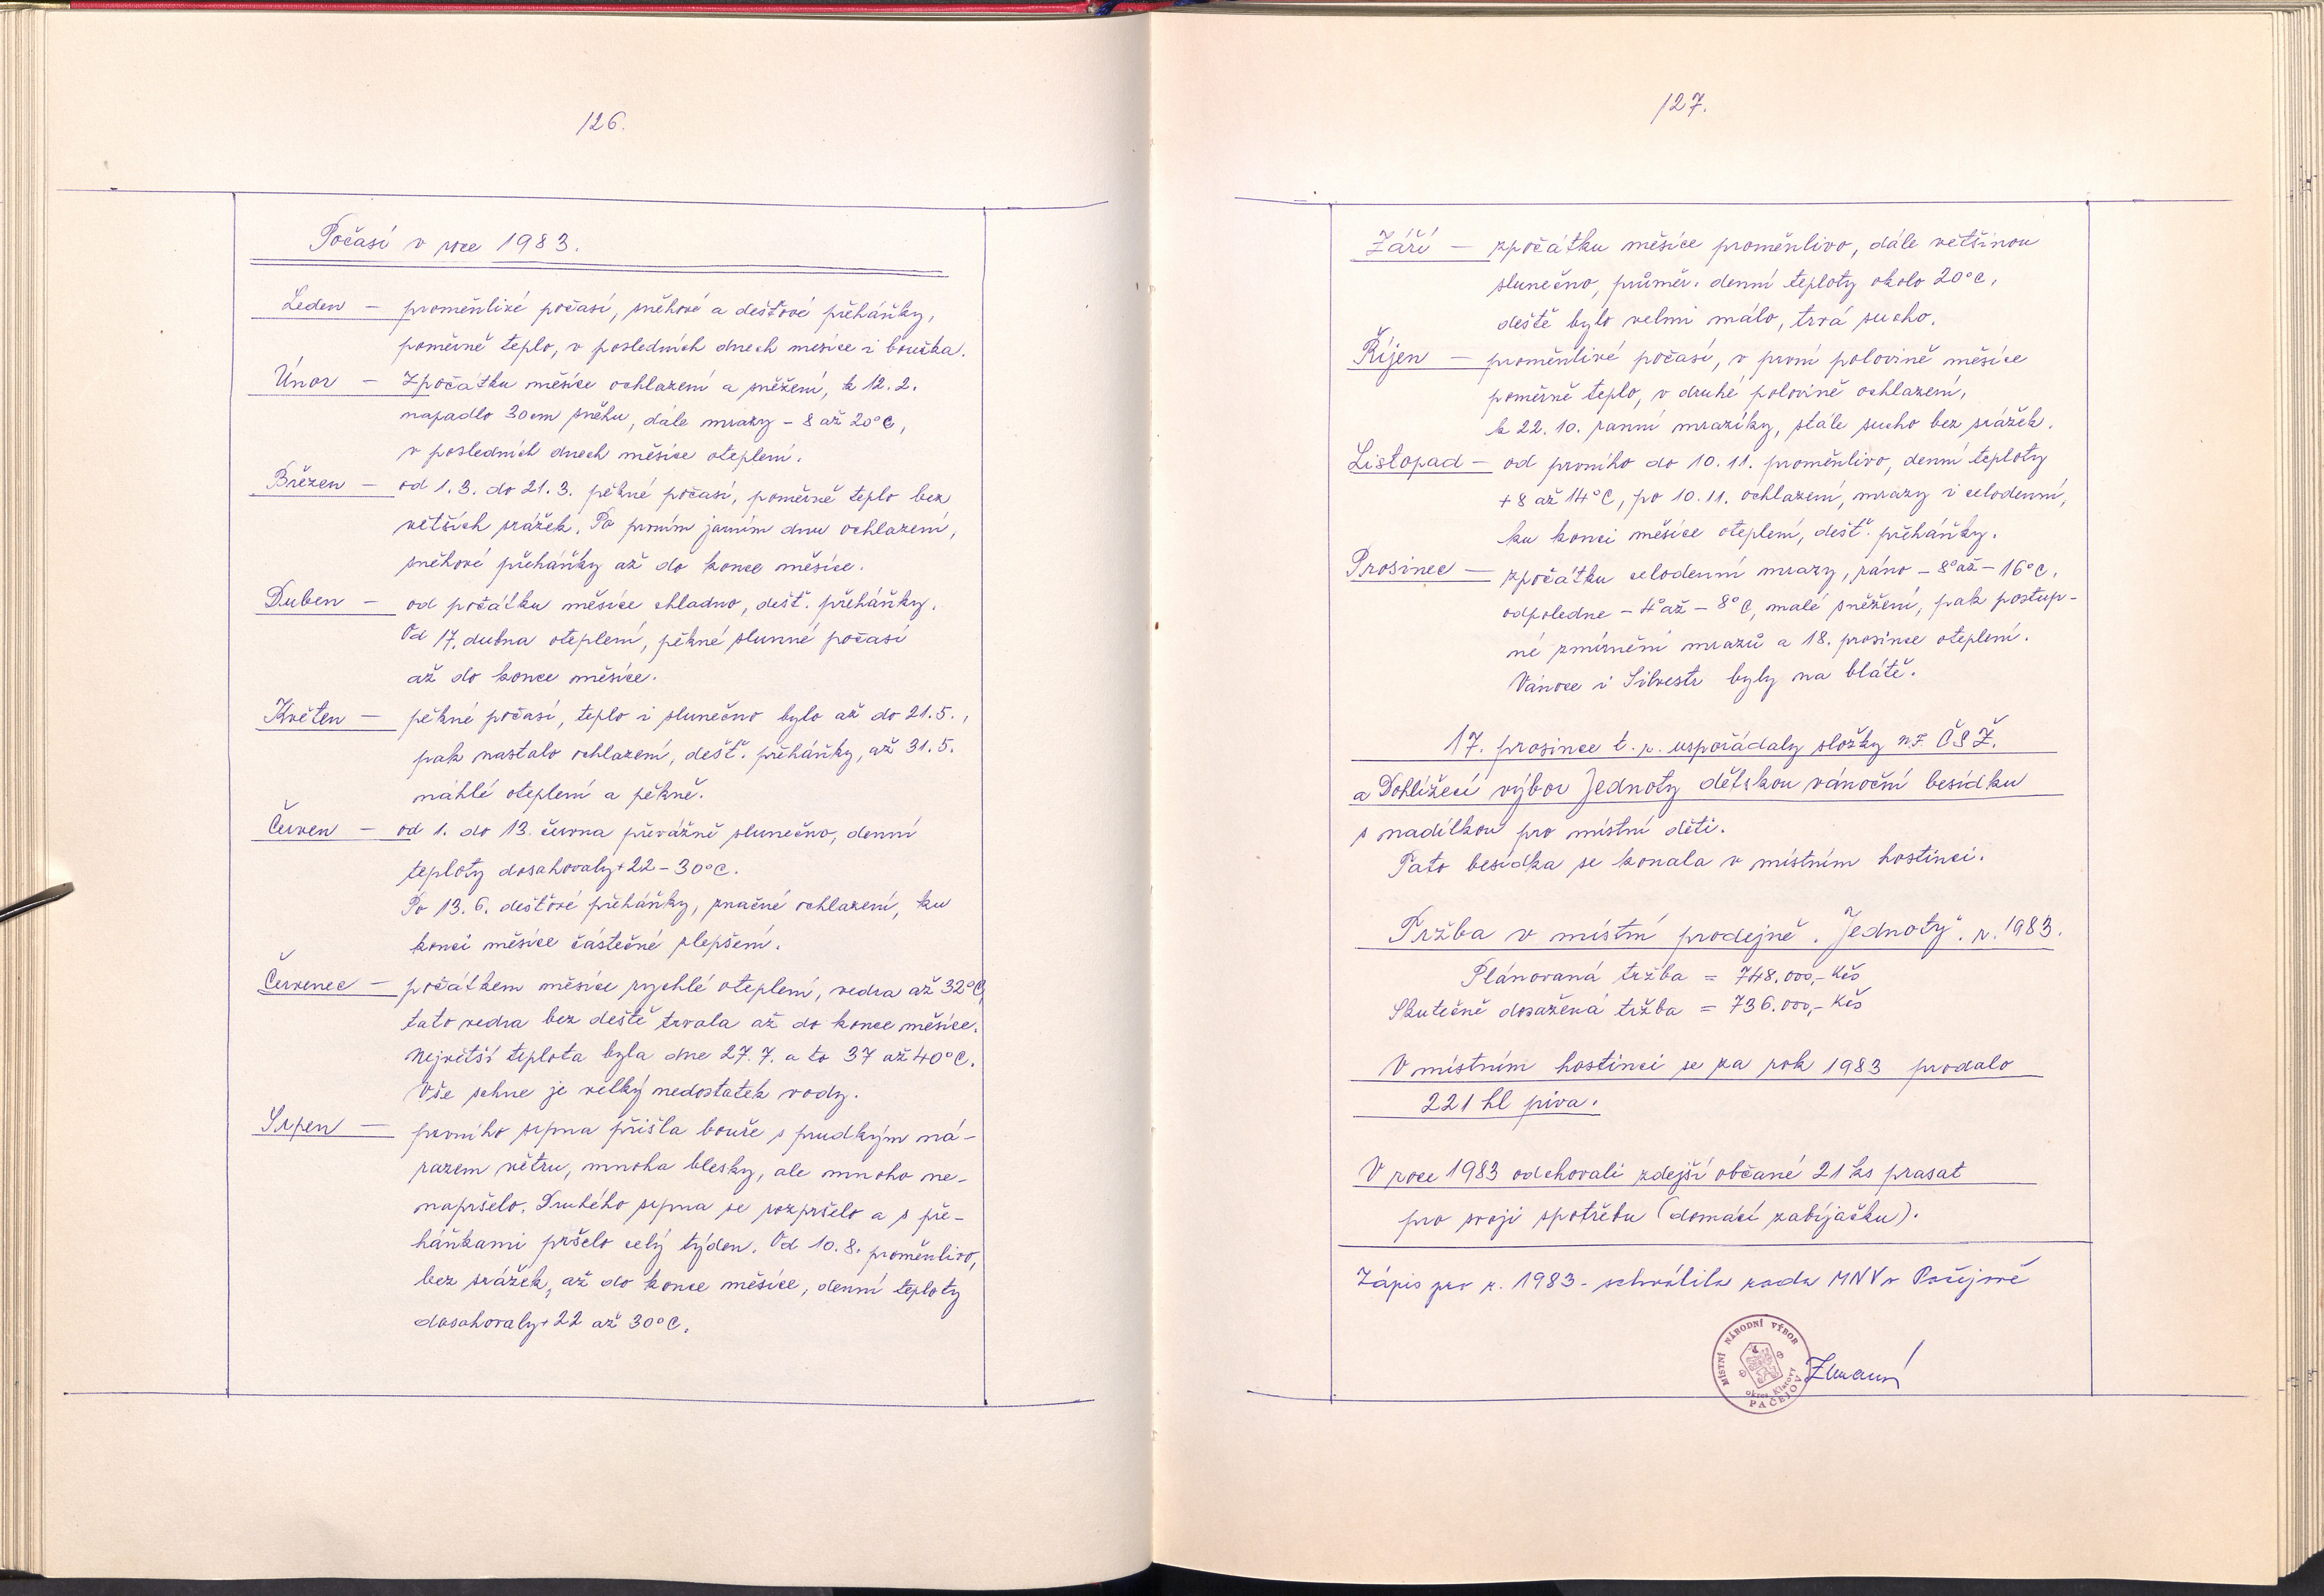 126.
Počasí v roce 1983.
Leden — proměnlivé počasí, sněhové a dešťové přeháňky,
poměrně teplo, v posledních dnech mesíce i bouřka.
Únor — Zpočátku měsíce ochlazení a sněžení, k 12. 2.
napadlo 30 cm sněhu, dále mrazy - 8 až 20°C,
v posledních dnech měsíce oteplení.
Březen — od 1. 3. do 21. 3. pěkné počasí, poměrně teplo bez
větších srážek. Po prvním jarním dnu ochlazení,
sněhové přeháňky až do konce měsíce.
Duben — od počátku měsíce chladno, dešť. přeháňky.
Od 17. dubna oteplení, pěkné slunné počasí
až do konce měsíce.
Květen — pěkné počasí, teplo i slunečno bylo až do 21. 5.,
pak nastalo ochlazení, dešť. přeháňky, až 31. 5.
náhlé oteplení a pěkně.
Červen — od 1. do 13. června převážně slunečno, denní
teploty dosahovaly + 22 - 30°C.
Po 13. 6. dešťové přeháňky, značné ochlazení, ku
konci měsíce částečné zlepšení.
Červenec — počátkem měsíce rychlé oteplení, vedra až 32°C,
tato vedra bez deště trvala až do konce měsíce.
Největší teplota byla dne 27. 7. a to 37 až 40°C.
Vše schne je velký nedostatek vody.
Srpen — prvního srpna přišla bouře s prudkým ná-
razem větru, mnoha blesky, ale mnoho ne-
napršelo. Druhého srpna se rozpršelo a s pře-
háňkami pršelo celý týden. Od 10. 8. proměnlivo,
bez srážek, až do konce měsíce, denní teploty
dosahovaly + 22 až 30°C.
127.
Září — zpočátku měsíce proměnlivo, dále většinou
slunečno, průměr. denní teploty okolo 20°C,
deště bylo velmi málo, trvá sucho.
Říjen — proměnlivé počasí, v první polovině měsíce
poměrně teplo, v druhé polovině ochlazení,
k 22. 10. ranní mrazíky, stále sucho bez srážek.
Listopad — od prvního do 10. 11. proměnlivo, denní teploty
+ 8 až 14°C, po 10. 11. ochlazení, mrazy i celodenní,
ku konci měsíce oteplení, dešť. přeháňky.
Prosinec — zpočátku celodenní mrazy, ráno - 8° až - 16°C,
odpoledne - 4° až - 8°C, malé sněžení, pak postup-
né zmírnění mrazů a 18. prosince oteplení.
Vánoce i Silvestr byly na blátě.
17. prosince t. r. uspořádaly složky N.F. ČSŽ.
a Dohlížecí výbor Jednoty dětskou vánoční besídku
s nadílkou pro místní děti.
Tato besídka se konala v místním hostinci.
Tržba v místní prodejně „Jednoty" r. 1983.
Plánovaná tržba = 748.000,- Kčs
Skutečně dosažená tržba = 736.000,- Kčs
V místním hostinci se za rok 1983 prodalo
221 hl piva.
V roce 1983 odchovali zdejší občané 21 ks prasat
pro svoji spotřebu (domácí zabíjačku).
Zápis pro r. 1983 - schválila rada MNV v Pačejově
MÍSTNÍ NÁRODNÍ VÝBOR
okres Klatovy
PAČEJOV